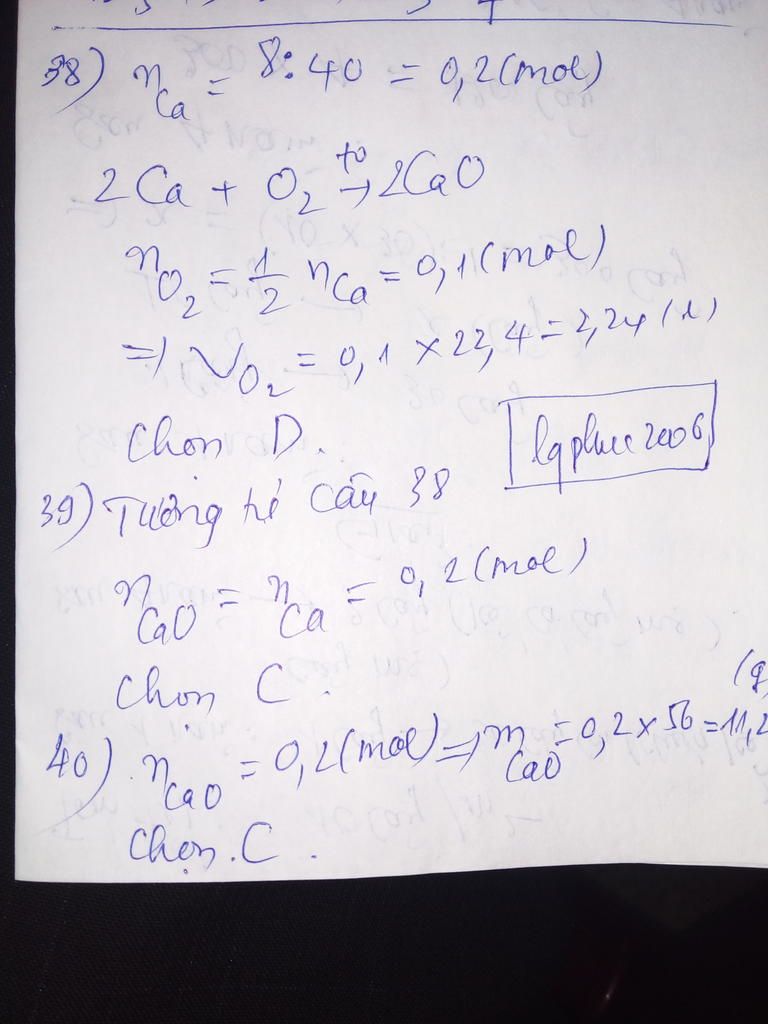 38) nCa = 8:40 = 0,2(mol)
2Ca + O2 →t° 2CaO
nO2 = 1/2 nCa = 0,1(mol)
=> VO2 = 0,1 × 22,4 = 2,24 (l)
Chọn D.
lqphuc2006
39) Tương tự câu 38
nCaO = nCa = 0,2(mol)
Chọn C.
40) nCaO = 0,2(mol) => mCaO = 0,2 × 56 = 11,2 (g)
Chọn.C.